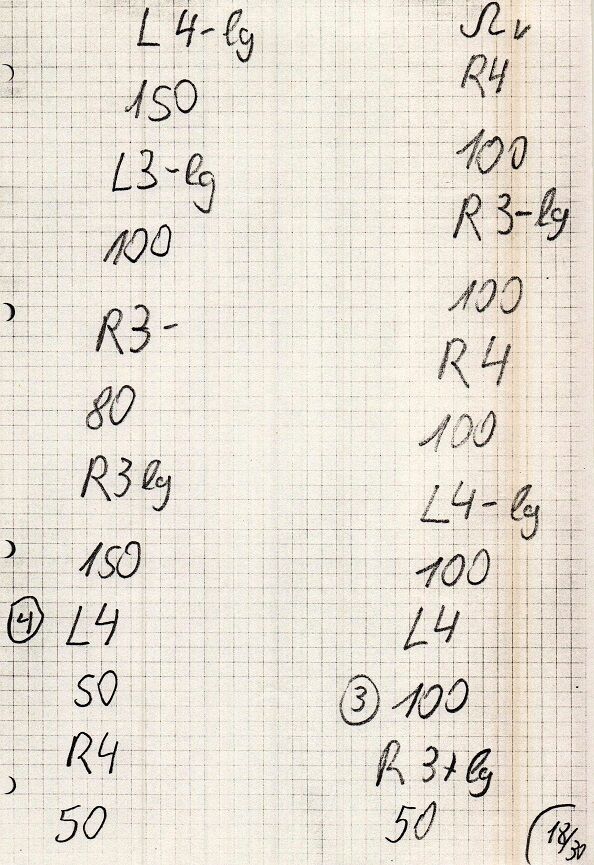 L4-lg
150
L3-lg
100
R3-
80
R3lg
150
④ L4
50
R4
50
Ωv
R4
100
R3-lg
100
R4
100
L4-lg
100
L4
③ 100
R3+lg
50
18/30